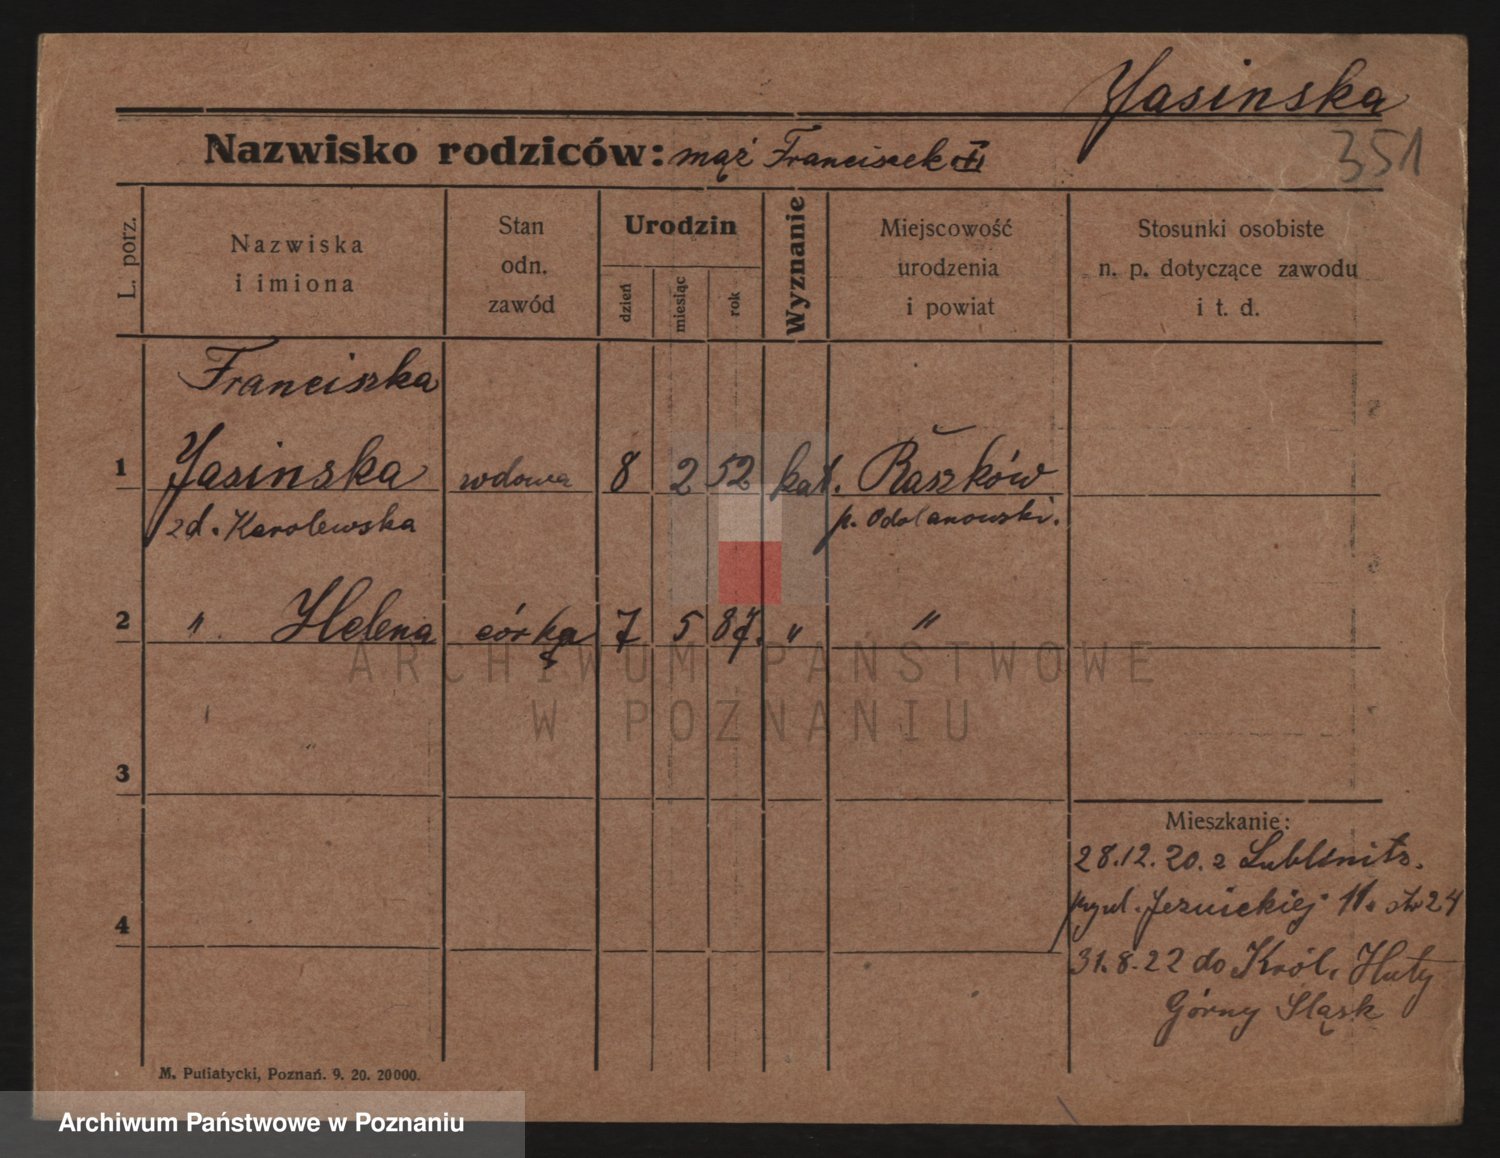 Yasinska
351
Nazwisko rodziców: mąż Franciszek
L. porz.
Nazwiska
i imiona
Stan
odn.
zawód
Urodzin
dzień
miesiąc
rok
Wyznanie
Miejscowość
urodzenia
i powiat
Stosunki osobiste
n. p. dotyczące zawodu
i t. d.
Franciszka
1 Yasinska wdowa 8 2 52 kat. Raszków
zd. Karolewska p. Odolanowski.
2 " Helena córka 7 5 87. " "
3
4
Mieszkanie:
28.12.20. z Lublinitz.
Jezuickiej 11. 24
31.8.22 do Król. Huty
Górny Śląsk
M. Putiatycki, Poznań. 9. 20. 20000.
ARCHIWUM PAŃSTWOWE
W POZNANIU
Archiwum Państwowe w Poznaniu